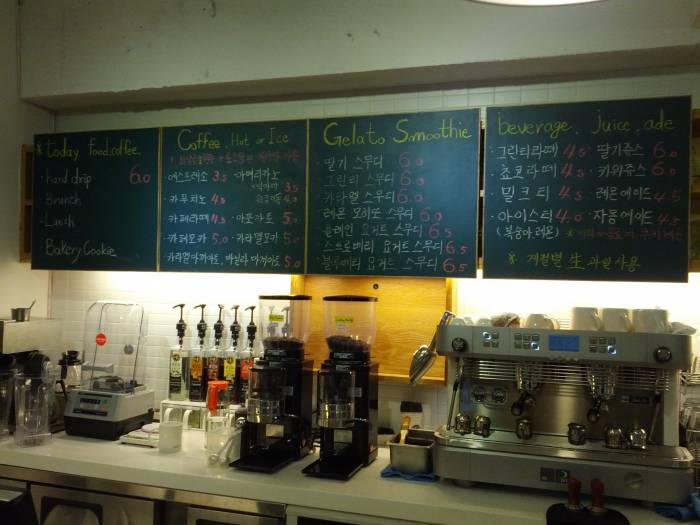 * today food.coffee.
· hard drip 6.0
· Brunch
· Lunch
· Bakery.Cookie
Coffee. Hot or Ice
· 에스프레소 3.5 · 아메리카노 3.5
4.0
· 카푸치노 4.5
· 카페라떼 4.5 · 아포카토 5.0
· 카페모카 5.0 · 카라멜모카 5.0
· 카라멜마끼아또, 바닐라마끼아또 5.0
Gelato Smoothie
· 딸기 스무디 6.0
· 그린티 스무디 6.0
· 카라멜 스무디 6.0
· 레몬 모히또 스무디 6.0
· 플레인 요거트 스무디 6.5
· 스트로베리 요거트 스무디 6.5
· 블루베리 요거트 스무디 6.5
beverage. juice. ade
· 그린티라떼 4.5 딸기쥬스 6.0
· 쵸코라떼 4.5 · 키위쥬스 6.0
· 밀크티 4.5 · 레몬에이드 4.5
· 아이스티 4.0 · 자몽에이드 4.5
(복숭아.레몬)
* 계절별 生 과일사용